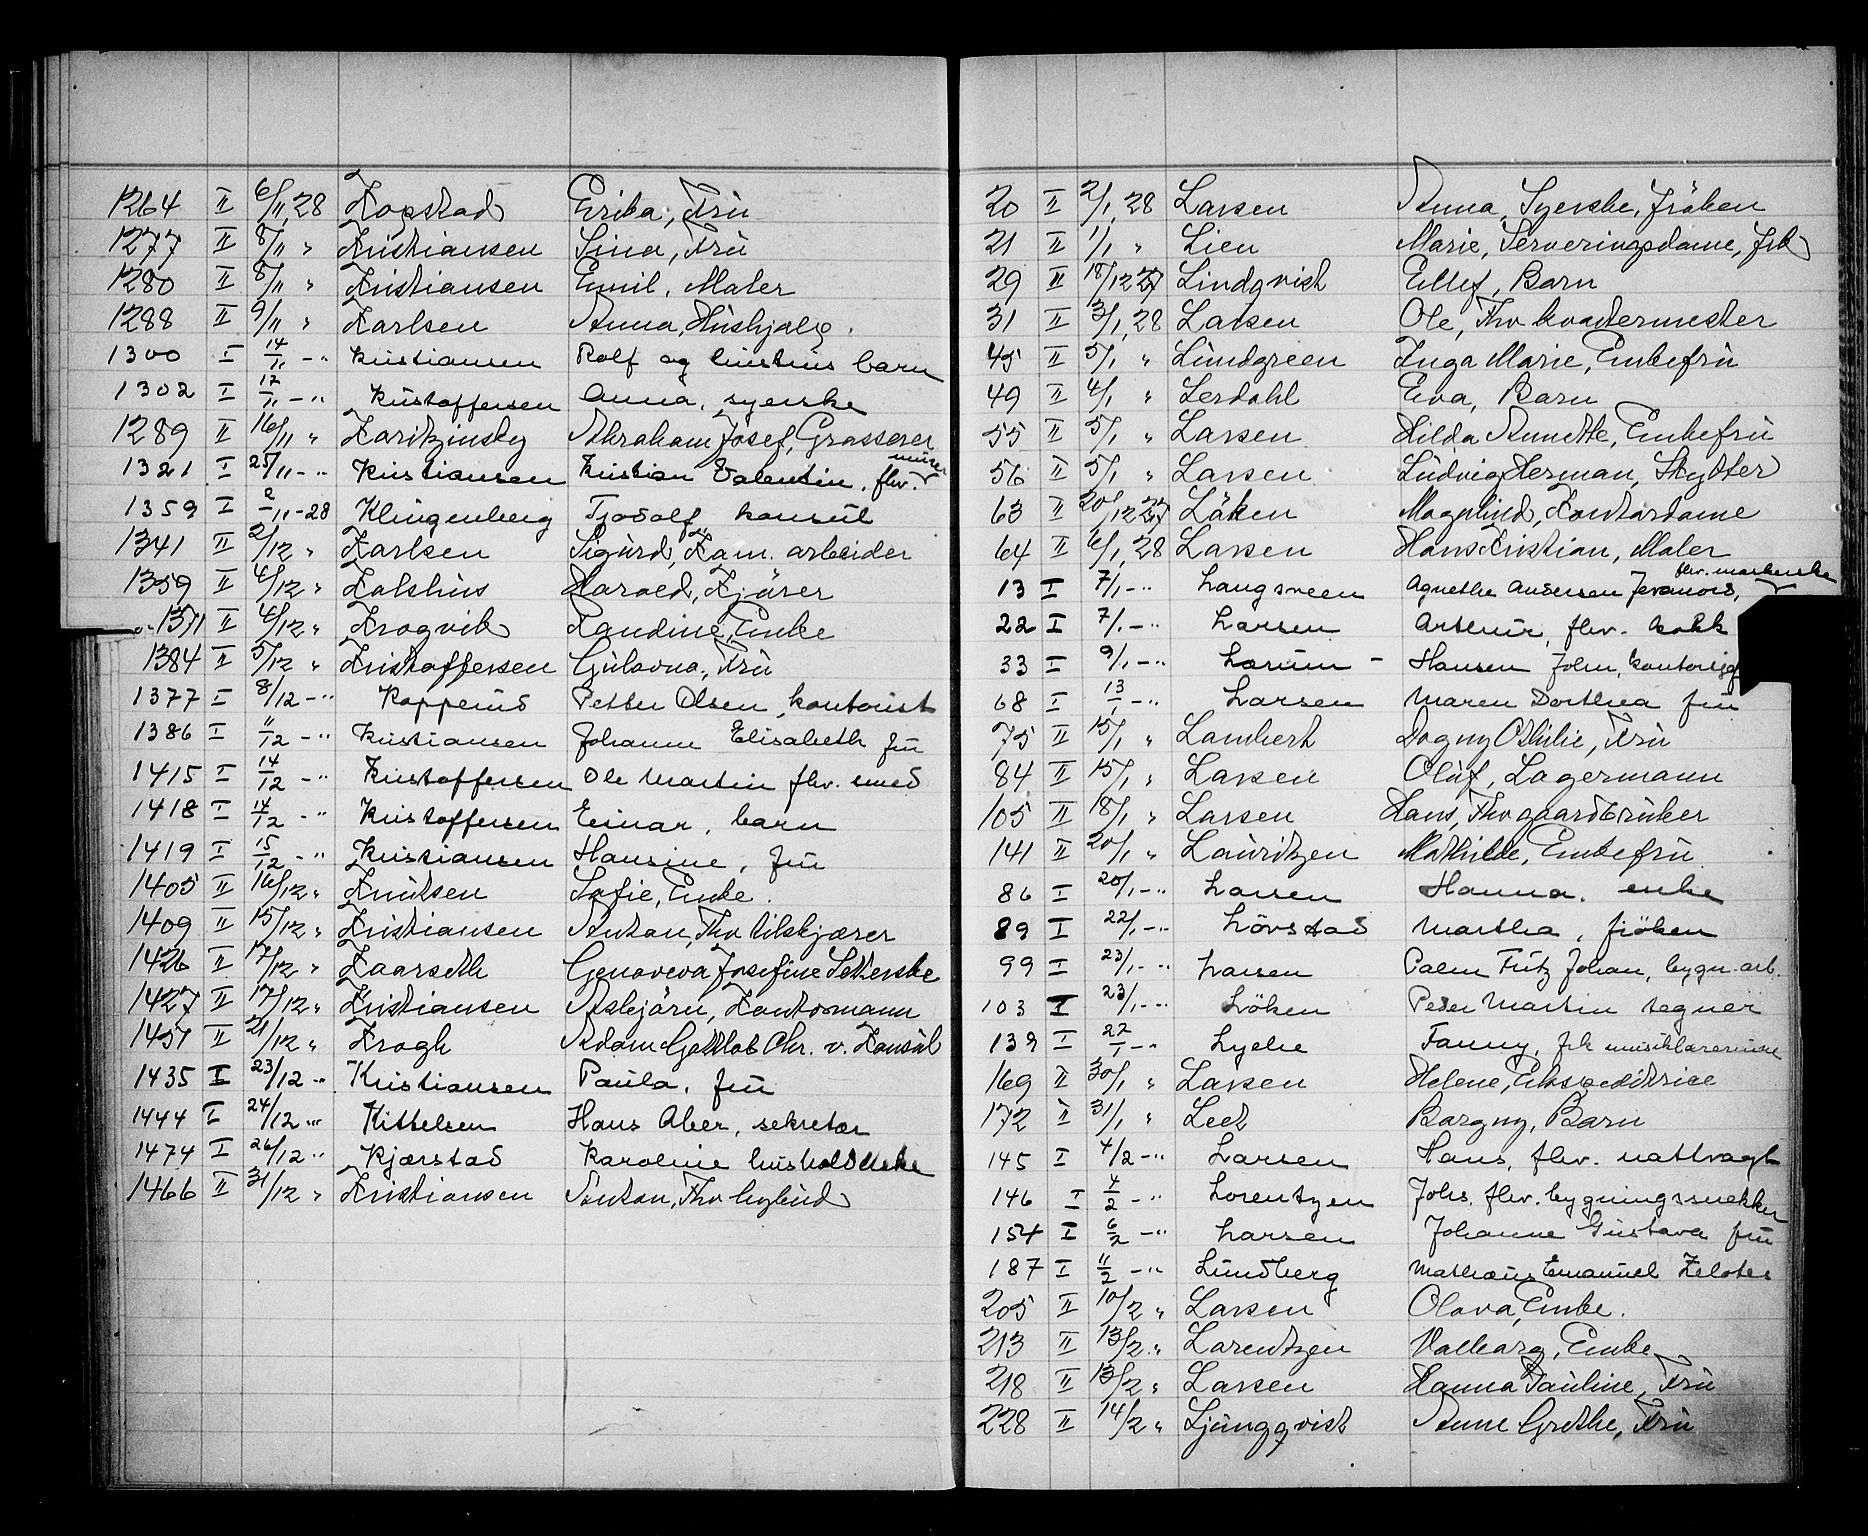 1264 II 6/11 28 Kopstad Erika, Fru
1277 II 8/11 " Kristiansen Lina, Fru
1280 II 8/11 " Kristiansen Emil, Maler
1288 II 9/11 " Karlsen Anna, Hushjælp.
1300 I 14/11 -" Kristiansen Rolf og barn
1302 I 17/11 -" Kristoffersen Anna, syerske
1289 II 16/11 " Abraham Josef, Grosserer
1321 I 25/11 -" Kristiansen Kristian Valentin, fhv. murer
1359 I 2/11 -28 Klingenberg Tjodolf konsul
1341 II 2/12 " Karlsen Sigurd, Kom. arbeider
1359 II 4/12 " Kolshus Harald, Kjører
1371 II 4/12 " Krogvik Landine, Enke
1384 II 5/12 " Kristoffersen Gulovna, Fru
1377 I 8/12 -" Kopperud Petter Olsen, kontorist
1386 I 11/12 -" Kristiansen Johanne Elisabeth fru
1415 I 14/12 -" Kristoffersen Ole Martin fhv. smed
1418 I 14/12 -" Kristoffersen Einar, barn
1419 I 15/12 -" Kristiansen Hansine, fru
1405 II 16/12 " Knutsen Sofie, Enke.
1409 II 15/12 " Kristiansen Anton, Fhv tilskjærer
1426 II 17/12 " Kaarseth Genoveva Josefine Setterske
1427 II 17/12 " Kristiansen Asbjørn, Kontormann
1451 II 21/12 " Krogh Adam Gottlob Chr. v. Konsul
1435 I 23/12 -" Kristiansen Paula, fru
1444 I 24/12 -" Kittelsen Hans Aber, sekretær
1474 I 26/12 -" Kjærstad Karoline husholderske
1466 II 31/12 " Kristiansen Anton, Fhv bybud
20 II 2/1 28 Larsen Anna, Syerske, Frøken
21 II 1/1 " Lien Marie, Serveringsdame, frk
29 II 18/12 27 Lindqvist Ellef, Barn
31 II 3/1 28 Larsen Ole, Fhv kvartermester
45 II 5/1 " Lundgreen Inga Marie, Enkefru
49 II 4/1 " Lerdahl Eva, Barn
55 II 5/1 " Larsen Hilda Annette, Enkefru
56 II 5/1 " Larsen Ludvig Herman, Skytter
63 II 20/12 27 Løken Magnhild, Kontordame
64 II 6/1 28 Larsen Hans Kristian, Maler
13 I 7/1 -" Langsveen Agnethe Andersen fhv.
22 I 7/1 -" Larsen Arthur, fhv. kokk
33 I 9/1 -" Larum - Hansen John,
68 I 13/1 -" Larsen Maren Dorthea fru
75 II 15/1 " Lambert Dagny Othilie, Fru
84 II 15/1 " Larsen Oluf, Lagermann
105 II 18/1 " Larsen Hans, Fhv gaardbruker
141 II 20/1 " Lauritzen Mathilde, Enkefru
86 I 20/1 -" Larsen Hanna, enke
89 I 22/1 -" Løvstad Martha, frøken
99 I 23/1 -" Larsen Palm Fritz Johan, bygn. arb.
103 I 23/1 -" Løken Peder Martin tegner
139 I 22/1 -" Lyche Fanny, frk musiklærerinne
169 II 30/1 " Larsen Helene, Ekspeditrice
172 II 31/1 " Leet Bargny, Barn
145 I 4/2 -" Larsen Hans, fhv. nattvagt
146 I 4/2 -" Lorentzen Johs. fhv. bygningssnekker
154 I 6/2 -" Larsen Johanne Gustava fru
187 I 11/2 -" Lundberg Mathæus Emanuel Zelotes
205 II 10/2 " Larsen Olava, Enke.
213 II 13/2 " Lorentzen Valborg, Enke
218 II 13/2 " Larsen Hanna Pauline, Fru
228 II 14/2 " Ljungqvist Anne Grethe, Fru